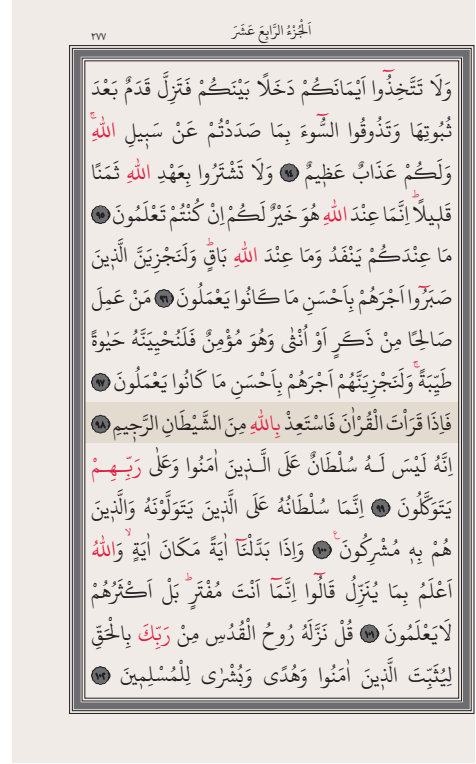 اَلْجُزْءُ الرَّابِعَ عَشَرَ
٢٧٧
وَلَا تَتَّخِذُٓوا اَيْمَانَكُمْ دَخَلًا بَيْنَكُمْ فَتَزِلَّ قَدَمٌ بَعْدَ
ثُبُوتِهَا وَتَذُوقُوا السُّٓوءَ بِمَا صَدَدْتُمْ عَنْ سَبٖيلِ اللّٰهِۚ
وَلَكُمْ عَذَابٌ عَظٖيمٌ ﴿٩٤﴾ وَلَا تَشْتَرُوا بِعَهْدِ اللّٰهِ ثَمَنًا
قَلٖيلًاؕ اِنَّمَا عِنْدَ اللّٰهِ هُوَ خَيْرٌ لَكُمْ اِنْ كُنْتُمْ تَعْلَمُونَ ﴿٩٥﴾
مَا عِنْدَكُمْ يَنْفَدُ وَمَا عِنْدَ اللّٰهِ بَاقٍؕ وَلَنَجْزِيَنَّ الَّذٖينَ
صَبَرُٓوا اَجْرَهُمْ بِاَحْسَنِ مَا كَانُوا يَعْمَلُونَ ﴿٩٦﴾ مَنْ عَمِلَ
صَالِحًا مِنْ ذَكَرٍ اَوْ اُنْثٰى وَهُوَ مُؤْمِنٌ فَلَنُحْيِيَنَّهُ حَيٰوةً
طَيِّبَةًۚ وَلَنَجْزِيَنَّهُمْ اَجْرَهُمْ بِاَحْسَنِ مَا كَانُوا يَعْمَلُونَ ﴿٩٧﴾
فَاِذَا قَرَاْتَ الْقُرْاٰنَ فَاسْتَعِذْ بِاللّٰهِ مِنَ الشَّيْطَانِ الرَّجٖيمِ ﴿٩٨﴾
اِنَّهُ لَيْسَ لَهُ سُلْطَانٌ عَلَى الَّذٖينَ اٰمَنُوا وَعَلٰى رَبِّهِمْ
يَتَوَكَّلُونَ ﴿٩٩﴾ اِنَّمَا سُلْطَانُهُ عَلَى الَّذٖينَ يَتَوَلَّوْنَهُ وَالَّذٖينَ
هُمْ بِهٖ مُشْرِكُونَࣖ ﴿١٠٠﴾ وَاِذَا بَدَّلْنَٓا اٰيَةً مَكَانَ اٰيَةٍۙ وَاللّٰهُ
اَعْلَمُ بِمَا يُنَزِّلُ قَالُٓوا اِنَّمَٓا اَنْتَ مُفْتَرٍؕ بَلْ اَكْثَرُهُمْ
لَا يَعْلَمُونَ ﴿١٠١﴾ قُلْ نَزَّلَهُ رُوحُ الْقُدُسِ مِنْ رَبِّكَ بِالْحَقِّ
لِيُثَبِّتَ الَّذٖينَ اٰمَنُوا وَهُدًى وَبُشْرٰى لِلْمُسْلِمٖينَ ﴿١٠٢﴾